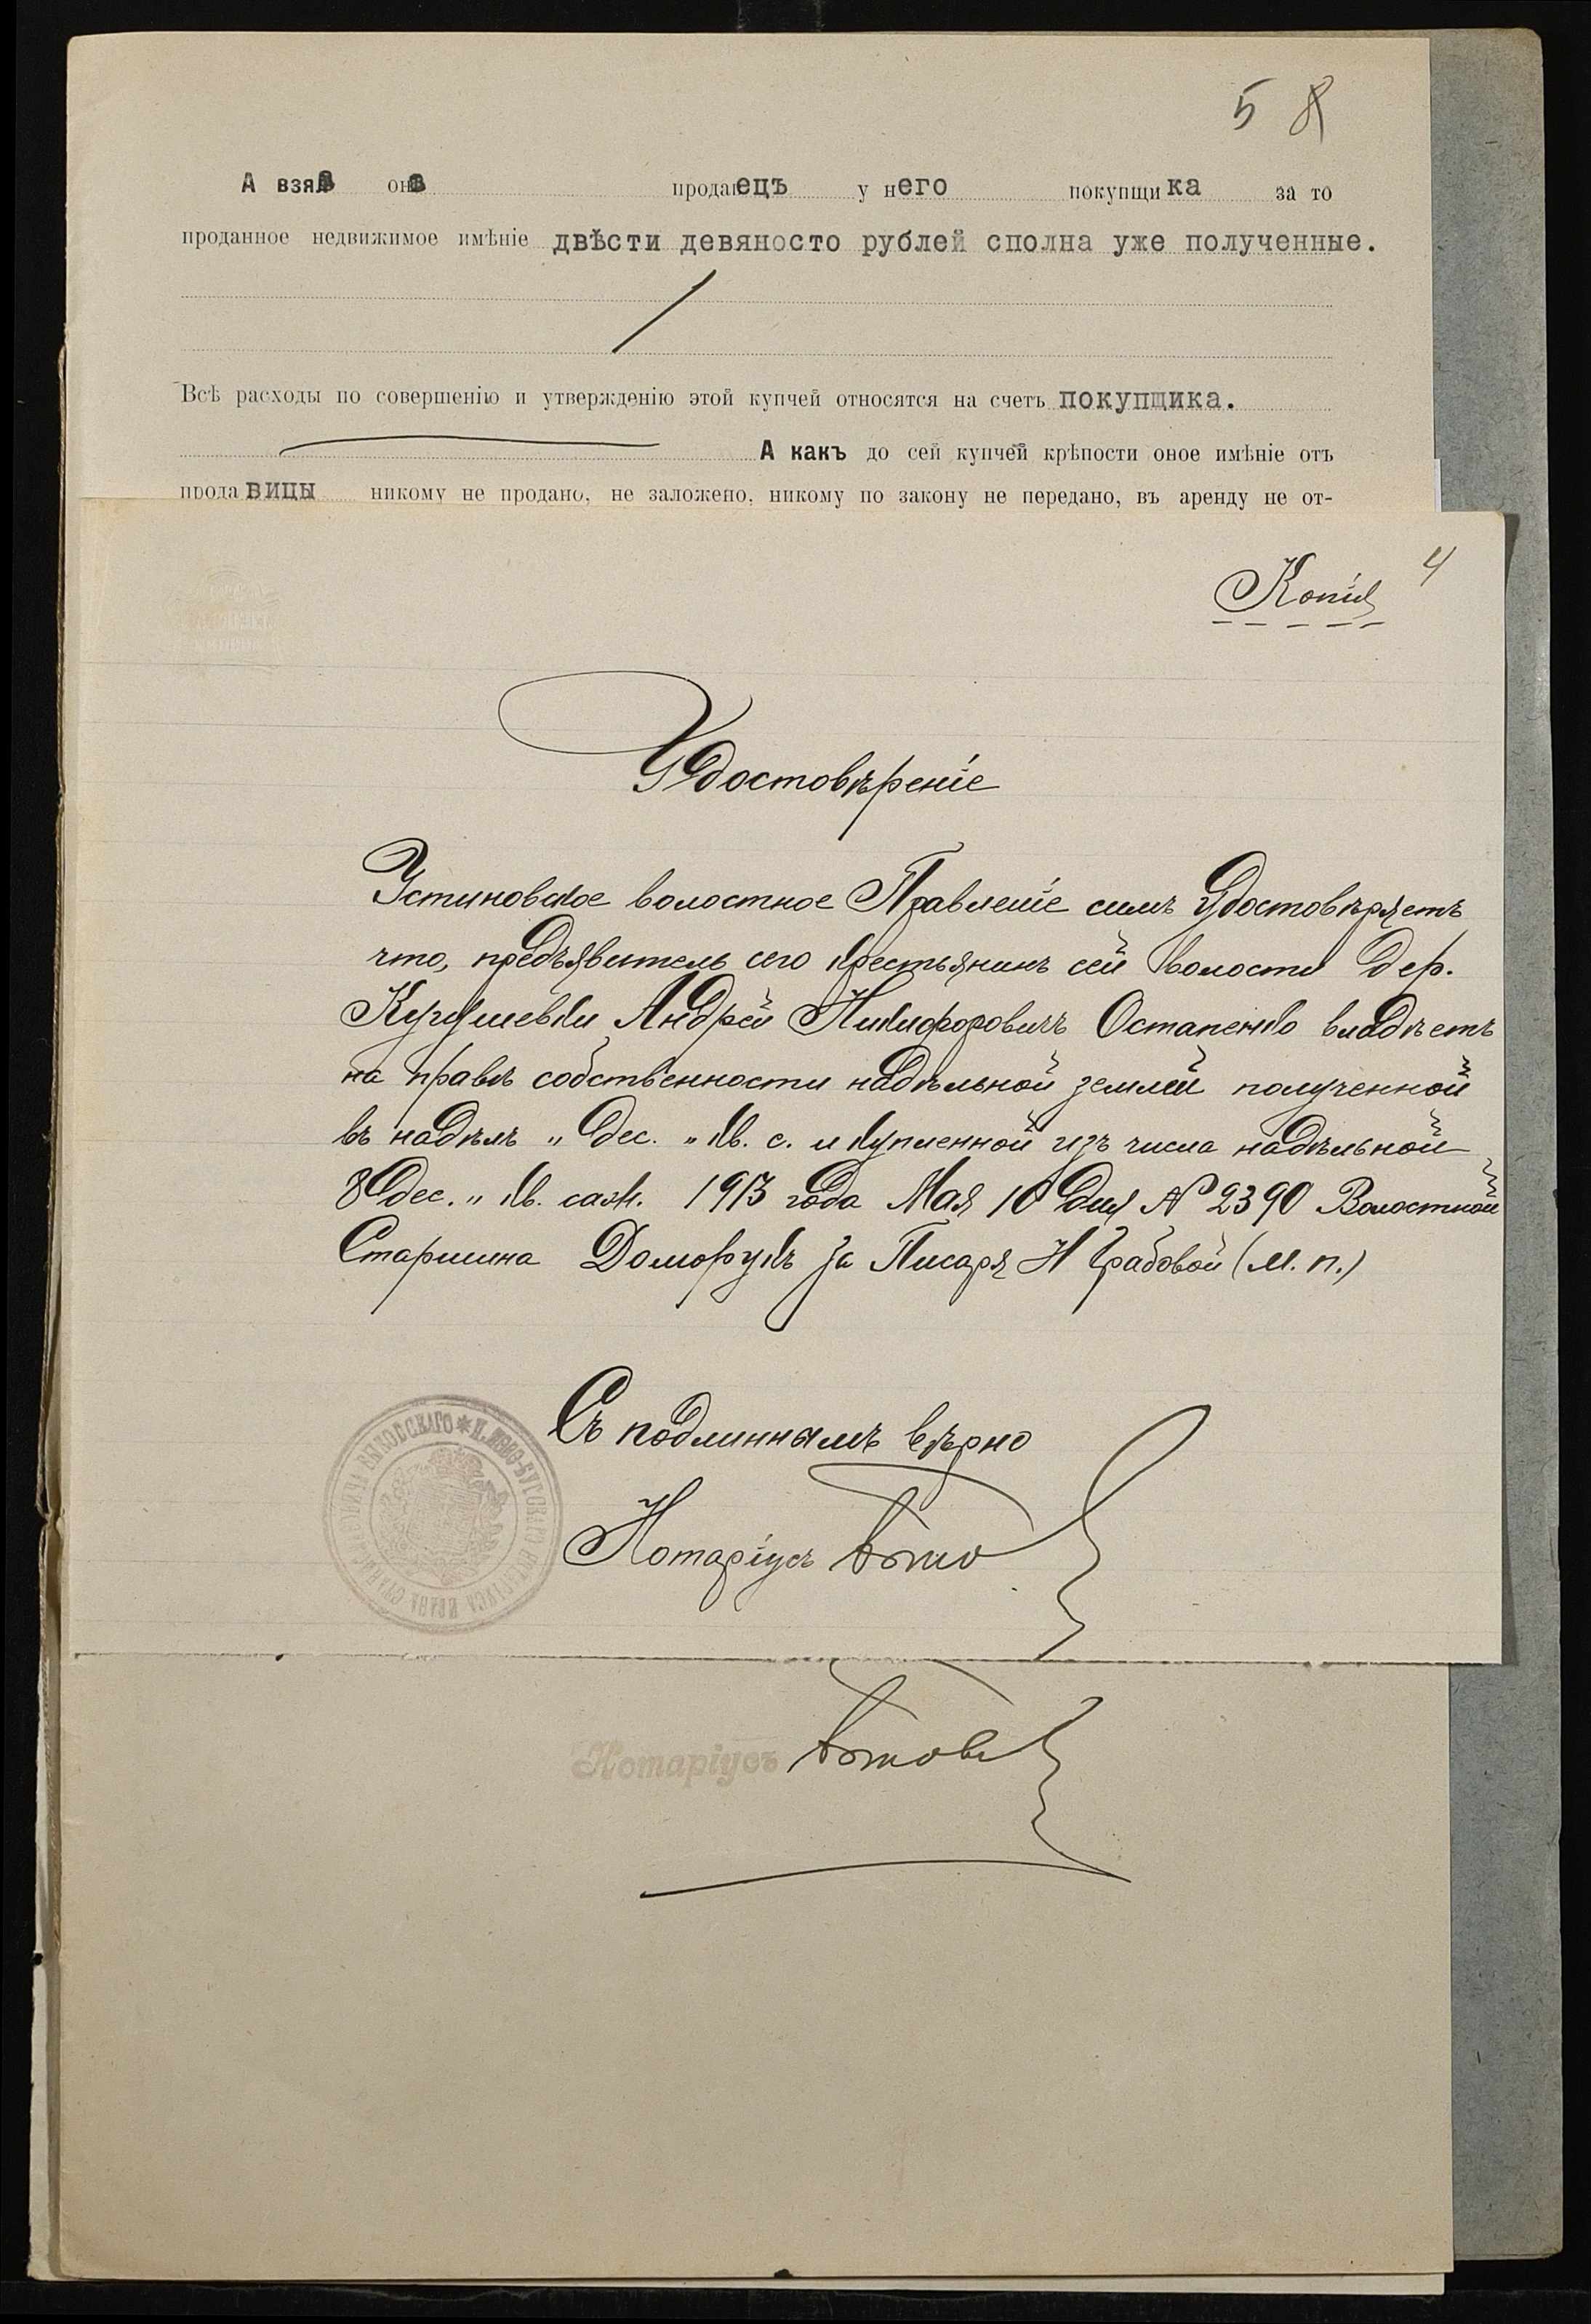 5 8
А взяла она продавецъ у него покупщика за то
проданное недвижимое имѣніе двѣсти девяносто рублей сполна уже полученные.
Всѣ расходы по совершенію и утвержденію этой купчей относятся на счетъ покупщика.
А какъ до сей купчей крѣпости оное имѣніе отъ
продавицы никому не продано, не заложено, никому по закону не передано, въ аренду не от-
4
Копія
Удостовѣреніе
Устиновское волостное Правленіе симъ Удостовѣряетъ
что, предъявитель сего крестьянинъ сей волости дер.
Андрей Никифоровичъ Остапенко владѣетъ
на правѣ собственности надѣльной землей полученной
въ надѣлъ „ дес. „ кв. с. и купленной изъ числа надѣльной
8 дес. „ кв. саж. 1913 года Мая 10 дня № 2390 Волостной
Старшина Доморукъ за Писаря Н Грабовой (м. п.)
Съ подлиннымъ вѣрно
Нотаріусъ
Нотаріусъ